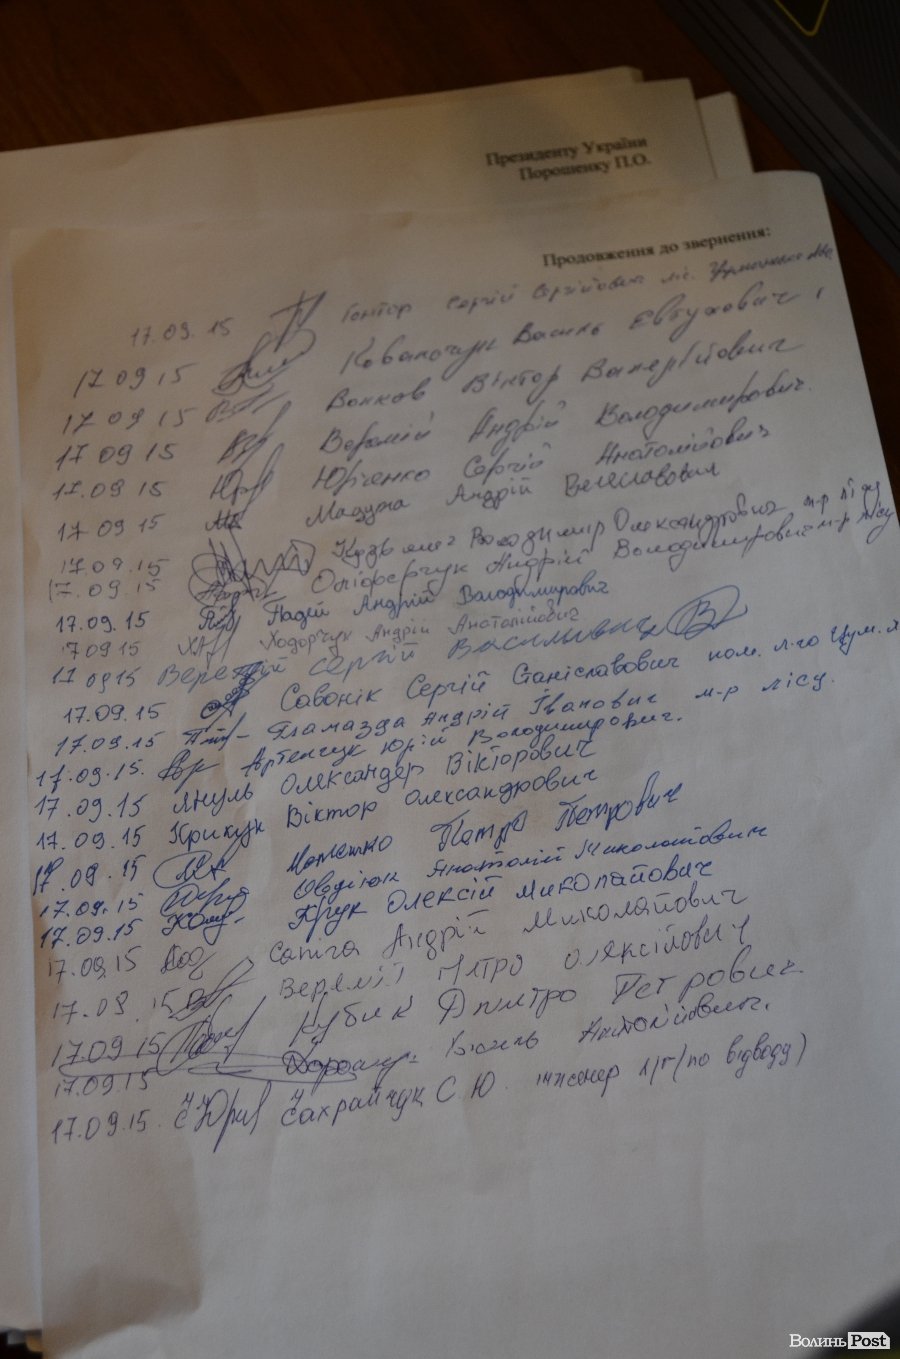 Президенту України
Порошенку П.О.
Продовження до звернення:
17.09.15 Гонтар Сергій Сергійович ліс.
17 09 15 Ковальчук Василь Евтухович
17 09 15 Волков Віктор Валерійович
17 09 15 Веремій Андрій Володимирович.
17.09 15 Юрченко Сергій Анатолійович
17 09 15 Андрій Вячеславович
17.09.15 Володимир Олександрович м-р лісу
17.09.15 Оліферчук Андрій Володимирович м-р лісу
17.09.15 Падій Андрій Володимирович
17 09 15 Ходорчук Андрій Анатолійович
17 09 15 Веремій Сергій Васильович
17.09.15 Савонік Сергій Станіславович пом. л-го Цум. л
17.09.15 Гламазда Андрій Іванович м-р лісу.
17.09.15. Артемчук Юрій Володимирович.
17.09.15 Януль Олександер Вікторович
17.09.15 Віктор Олександрович
17.09.15 Петро Петрович
17.09.15 Анатолій Миколайович
17.09.15 Крук Олексій Миколайович
17.09.15 Сапіга Андрій Миколайович
17.09.15 Веремій Петро Олексійович
17.09 15 Кубик Дмитро Петрович
17.09.15 Анатолійович.
17.09.15. Захрайчук С.Ю. інженер л/г (по відводу)
Волинь Post